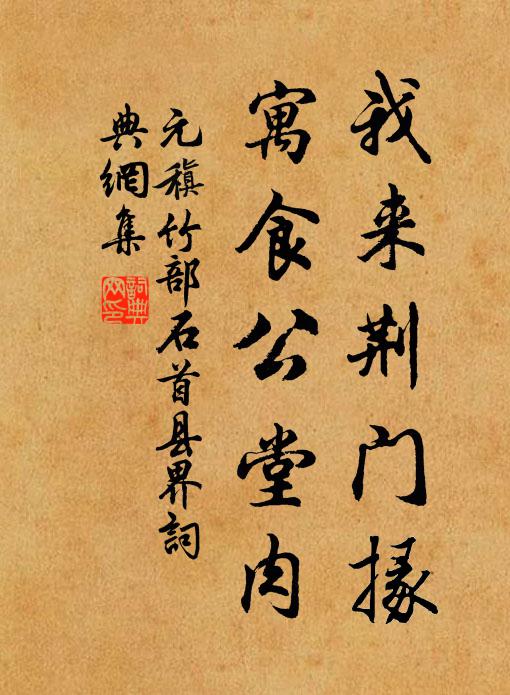 我来荆门掾
寓食公堂肉
元稹竹部石首县界詞
典網集
詞典
网印